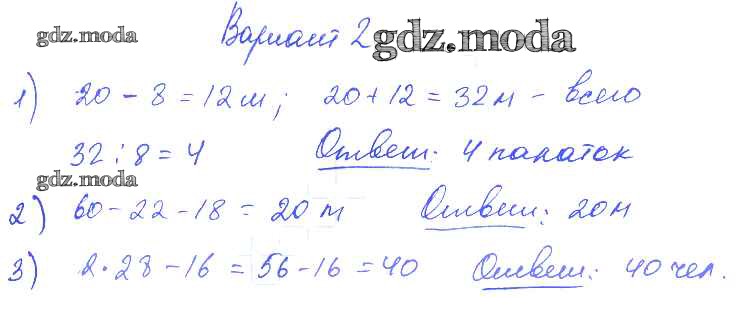 gdz.moda Вариант 2 gdz.moda
1) 20 - 8 = 12 м; 20 + 12 = 32 м - всего
32 : 8 = 4 Ответ: 4 палаток
gdz.moda
2) 60 - 22 - 18 = 20 м Ответ: 20 м
3) 2 · 28 - 16 = 56 - 16 = 40 Ответ: 40 чел.